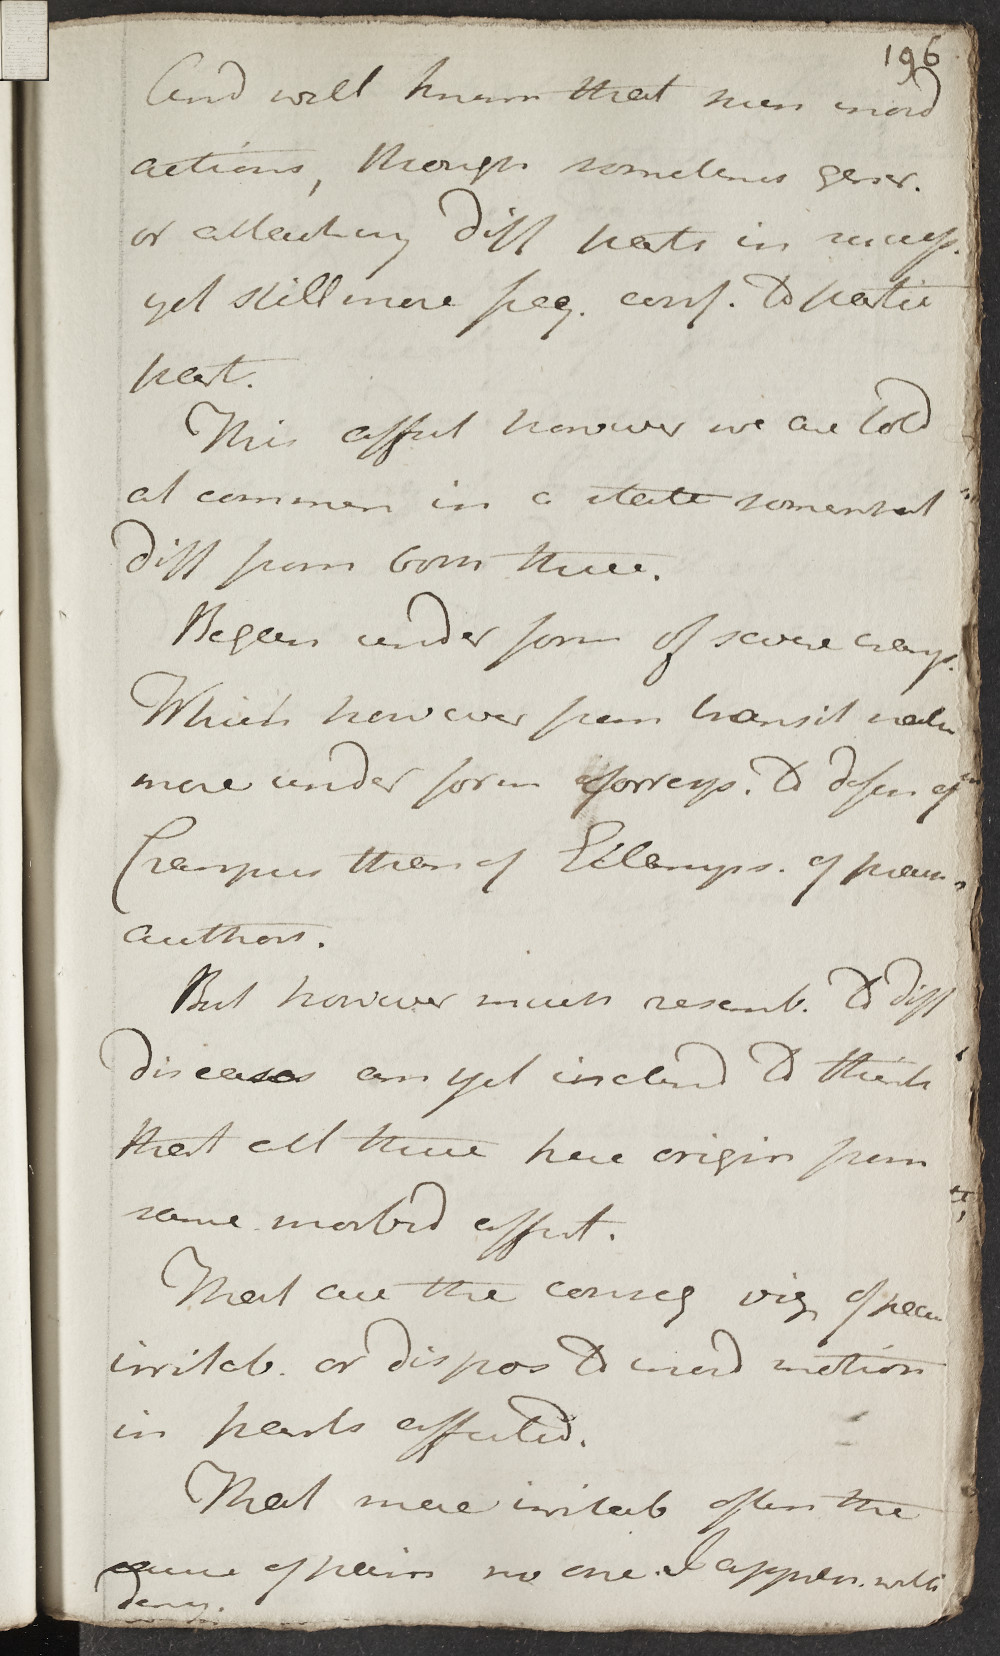 196
And well known that such inord
actions, though sometimes gener.
or attacking diff parts in success.
yet still more freq. conf. to partic
part.
This affect however we are told
at commen in a state somewhat
diff from both these.
Began under form of severe cramp.
Which however from transit
more under form corresp. to defin of
Crampus than of Eclamps. of
authors.
But however much resemb. to diff
diseases am yet inclined to think
that all these have origin from
same morbid affect.
That are the conseq viz of
irritab. or dispos to inord motion
in parts affected.
That mere irritab often the
cause of pain no one I appreh. will
deny.